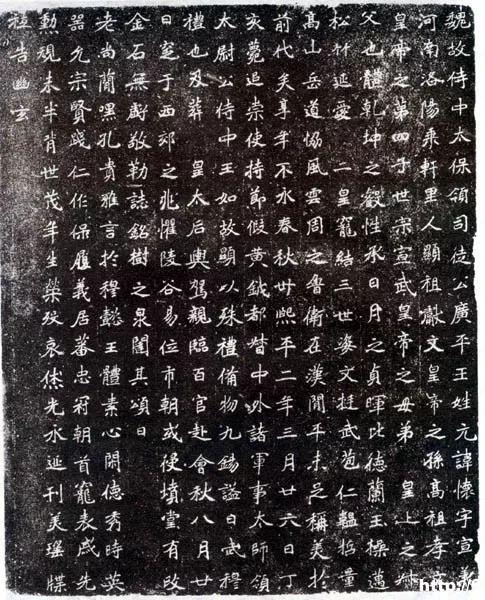 魏故侍中太保領司徒公廣平王姓元諱懷字宣義
河南洛陽乘軒里人顯祖獻文皇帝之孫高祖孝文
皇帝之第四子世宗宣武皇帝之母弟 皇上之叔
父也體乾坤之叡性承日月之貞暉比德蘭玉操邁
松竹延愛 二皇寵結三世姿文挺武苞仁韞哲量
高山岳道協風雲周之魯衛在漢間平未足稱美於
前代矣享年不永春秋卅熙平二年三月廿六日丁
亥薨追崇使持節假黃鉞都督中外諸軍事太師領
太尉公侍中王如故顯以殊禮備物九錫謚曰武穆
禮也及葬 皇太后輿駕親臨百官赴會秋八月廿
日窆于西郊之兆懼陵谷易位市朝或侵墳堂有改
金石無虧敬勒誌銘樹之泉闥其頌曰
老尚簡嘿孔貴雅言於穆懿王體素心閑德秀時英
器允宗賢踐仁作保履義居蕃忠冠朝首寵表戚先
勲規未半背世茂年生榮歿哀休光永延刊美瑤牒
祇告幽玄
http://